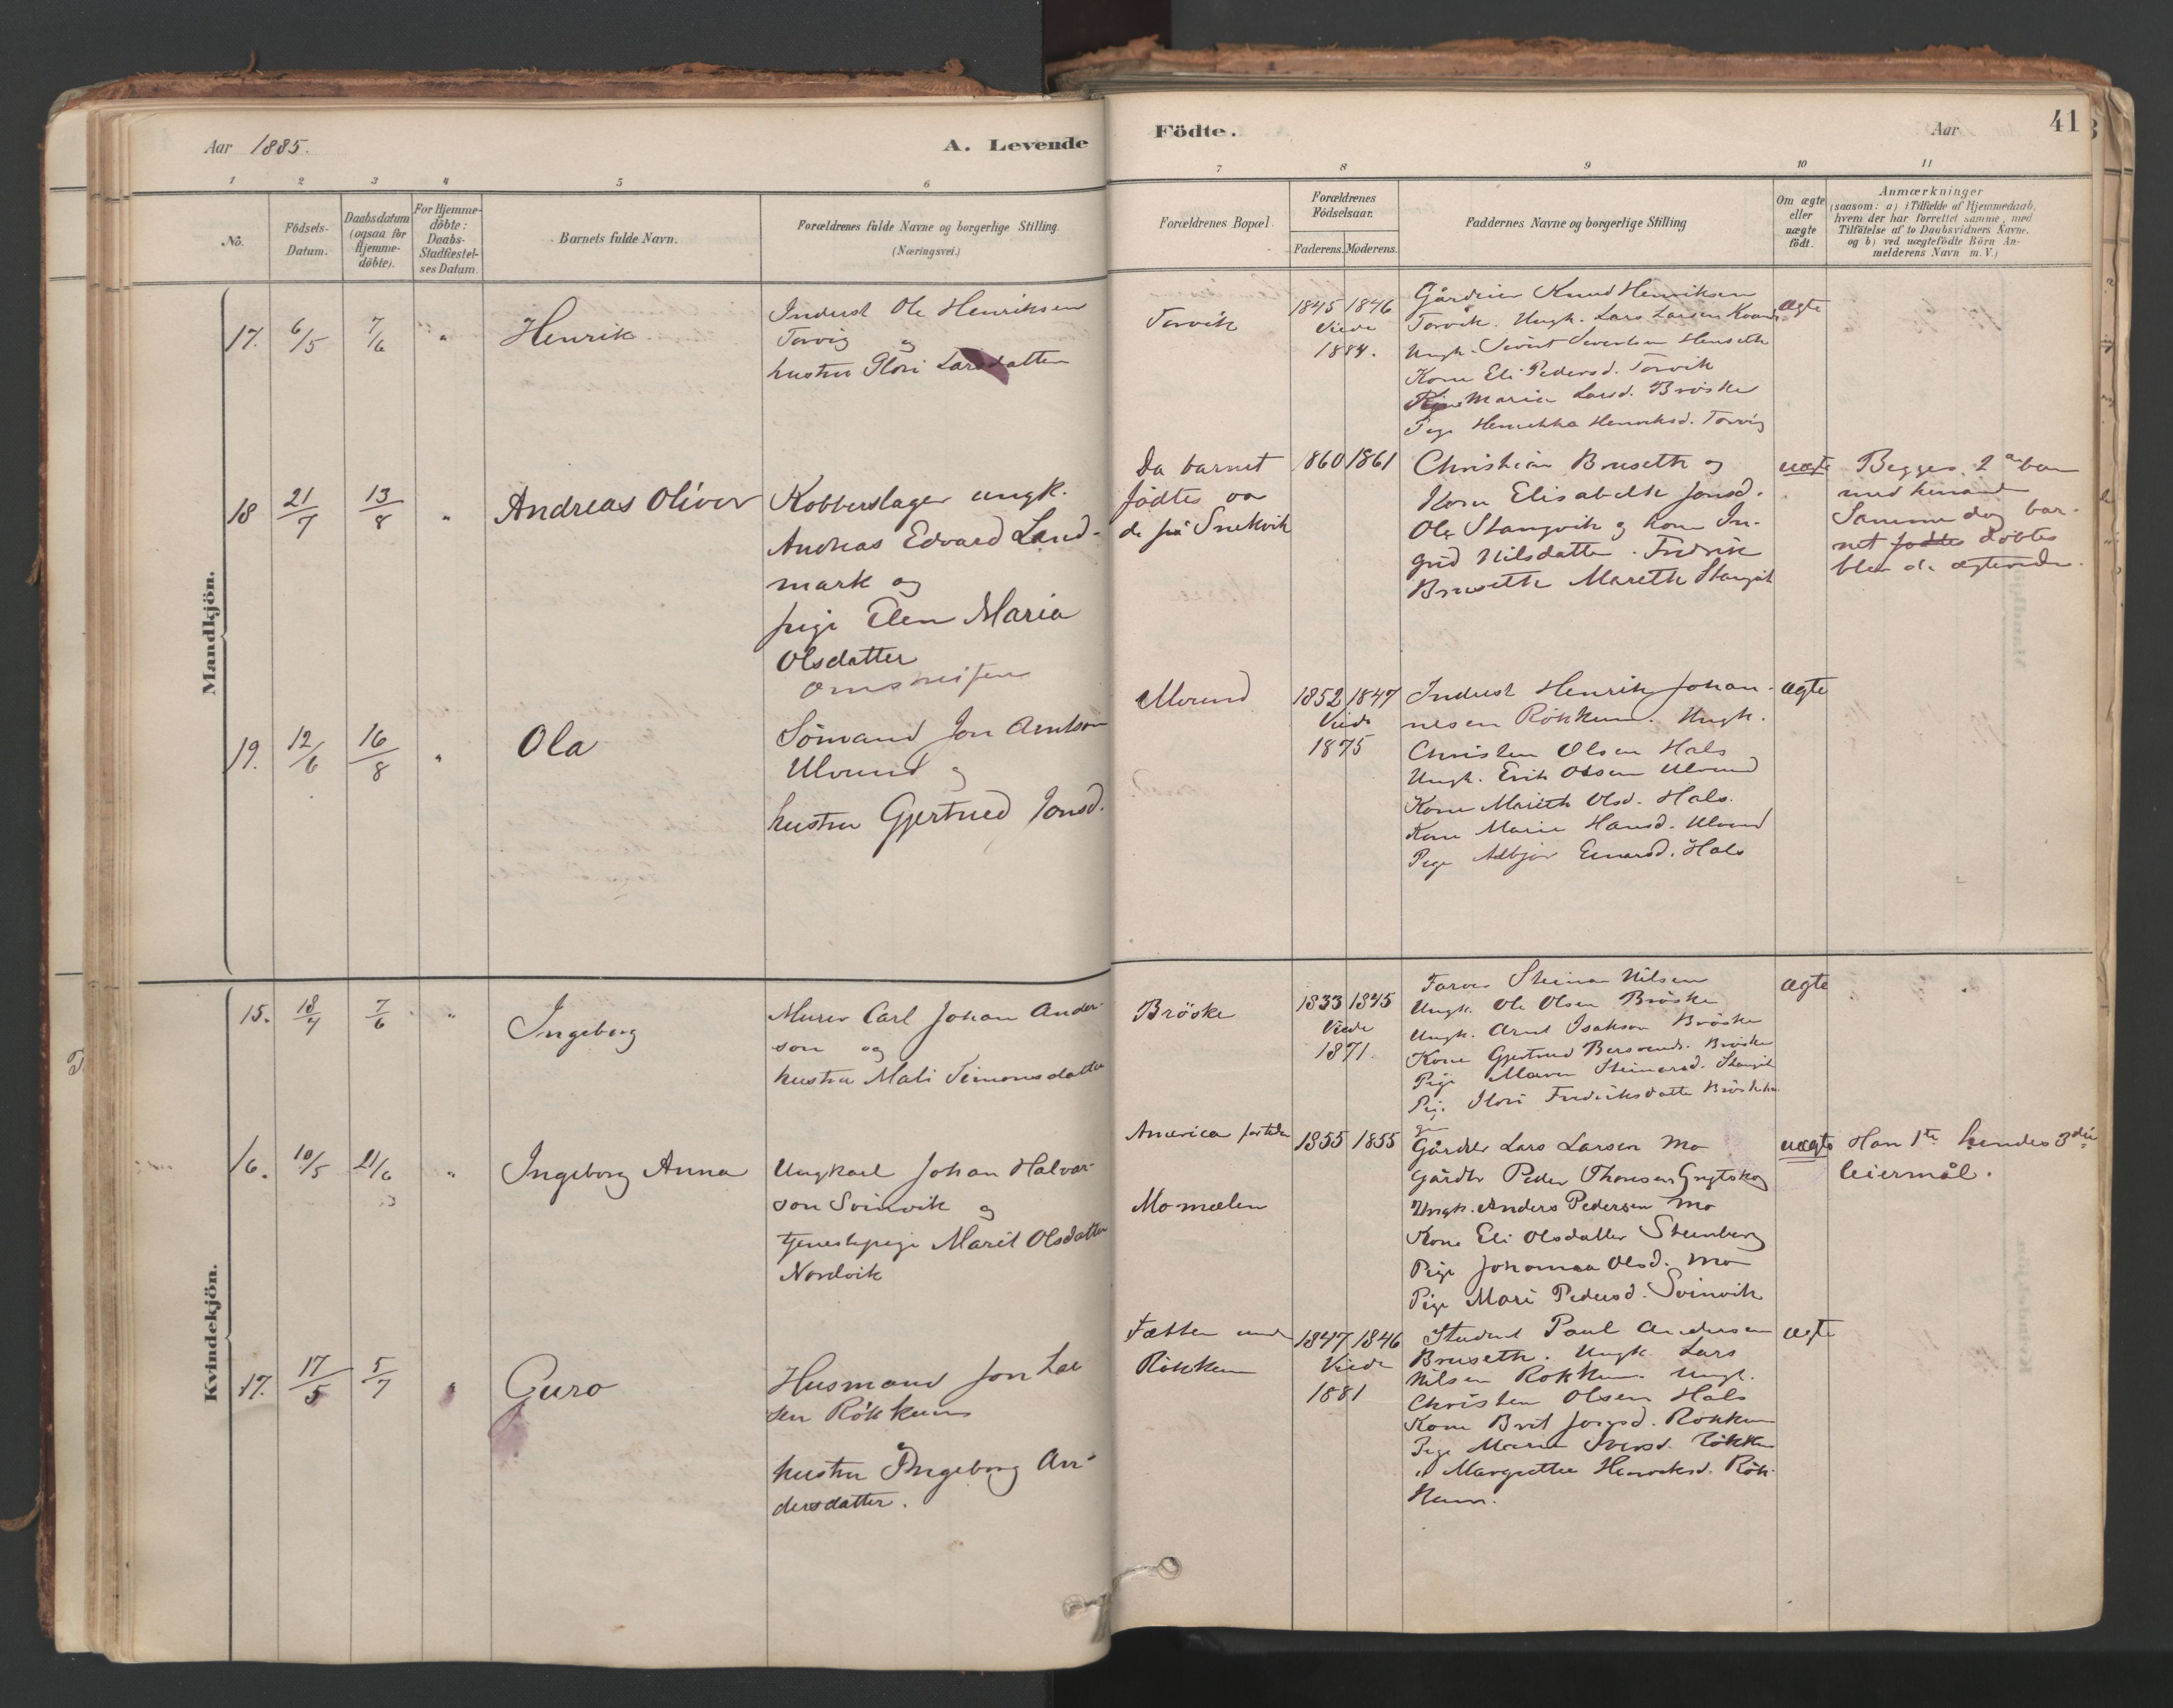 Aar 1885.
A. Levende
Födte.
Aar
41
1 2 3 4 5 6 7 8 9 10 11
No.
Födsels-
Datum.
Daabsdatum
(ogsaa for
Hjemme-
döbte).
For Hjemme-
döbte:
Daabs-
Stadfæstel-
ses Datum.
Barnets fulde Navn.
Forældrenes fulde Navne og borgerlige Stilling.
(Næringsvei.)
Forældrenes Bopæl.
Forældrenes
Födselsaar.
Faderens. Moderens.
Faddernes Navne og borgerlige Stilling
Om ægte
eller
uægte
födt.
Anmærkninger
(saasom: a) i Tilfælde af Hjemmedaab,
hvem der har forrettet samme, med
Tilföielse af to Daabsvidners Navne.
og b) ved uægtefödte Börn An-
melderens Navn m. V.)
Mandkjön.
17. 6/5 7/6 "
Henrik
Inderst Ole Henriksen
Torvig og
hustru Larsdatter
Torvik
1845 1846
Viede
1884.
Knud Henriksen
Torvik. Ungk. Lars Larsen
Ungk. Sivert Sivertsen Henseth
Kone Eli Pedersd. Torvik
Maria Larsd. Bröske
Pige Henrikka Henriksd. Torvig
ægte
18 21/7 13/8 "
Andreas Oliver
Kobberslager ungk.
Andreas Edvard Land-
mark og
pige Elen Maria
Olsdatter
Da barnet
födtes var
de på Snekvik
1860 1861
Christian Bruseth og
Kone Elisabeth Jonsd.
Ole Stangvik og kone In-
grid Nilsdatter. Fredrik
Bruseth Mareth Stangvik
uægte
Begges 2 barn
med hinand
Samme dag bar-
net födtes döbtes
blev de ægteviede.
19. 12/6 16/8 "
Ola
Sömand Jon Arntson
Ulvund og
hustru Gjertrued Jonsd.
Ulvund
1852 1847
Viede
1875
Inderst Henrik Johan-
nesen Rökkum. Ungk.
Christen Olsen Hals
Ungk. Erik Olsen Ulvund
Kone Marith Olsd. Hals.
Kone Marie Hansd. Ulvund
Pige Asbjör Einarsd. Hals
ægte
Kvindekjön.
15. 18/4 7/6 "
Ingeborg
Murer Carl Johan Ander-
son og
hustru Mali Simonsdatter
Bröske
1833 1845
Viede
1871.
Steinar Nilsen
Ungk. Ole Olsen Bröske
Ungk. Arnt Isakson Bröske
Kone Gjertrud Bröske
Pige Maren Steinarsd. Stangvik
Pige Fredriksdatter
ægte
16. 10/5 21/6 "
Ingeborg Anna
Ungkarl Johan Halvar-
son Svinvik og
tjenestepige Marit Olsdatter
Nordvik
America
Momælen
1855 1855
Gårdbr Lars Larsen Mo
Gårdbr Peder Thoresen
Ungk. Anders Pedersen Mo
Kone Eli Olsdatter Steinberg
Pige Johanna Olsd. Mo
Pige Mari Pedersd. Svinvik
uægte
Han 1te hendes 3die
leiermål.
17. 17/5 5/7 "
Guro
Husmand Jon Lar
sen Rökkum
hustru Ingeborg An-
dersdatter.
Sætter under
Rökkum
1847 1846
Viede
1881
Student Paul Andersen
Bruseth. Ungk Lars
Nilsen Rökkum. Ungk.
Christen Olsen Hals
Kone Brit Rökkum
Pige Marie Iversd. Rökkum
" Margrethe Henriksd. Rök-
kum.
ægte